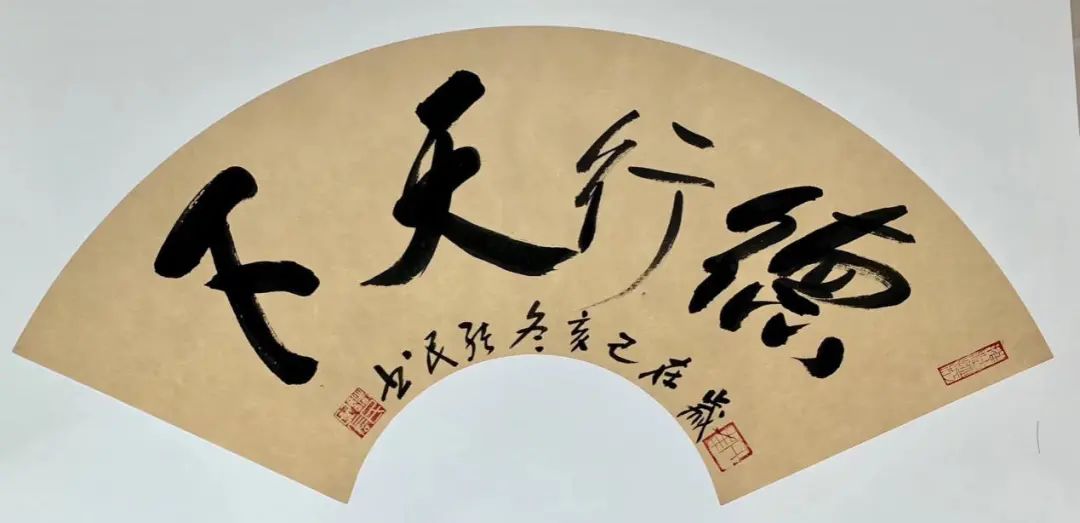 德行天下
歲在己亥冬张民书